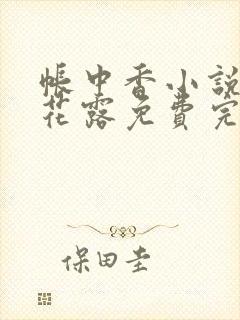 帳中香小説
花露免費完
保田圭